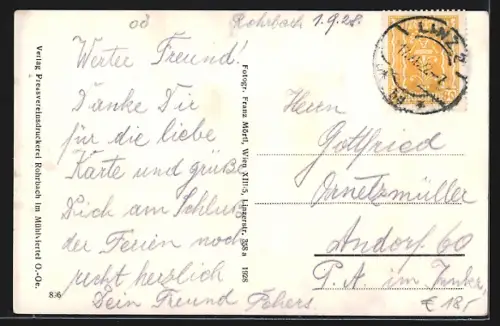 oö
Rohrbach 1.9.28.
Werter Freund!
Danke Dir
für die liebe
Karte und grüße
Dich am Schluß
der Ferien noch
recht herzlich
Dein Freund
Herrn
Gottfried
Ornetzmüller
Andorf 60
P. A. im
€ 18,-
LINZ 2
Verlag Pressvereinsdruckerei Rohrbach im Mühlviertel O.-Oe.
Fotogr. Franz Mörtl, Wien XIII/5, Linzerstr. 398a 1928
836